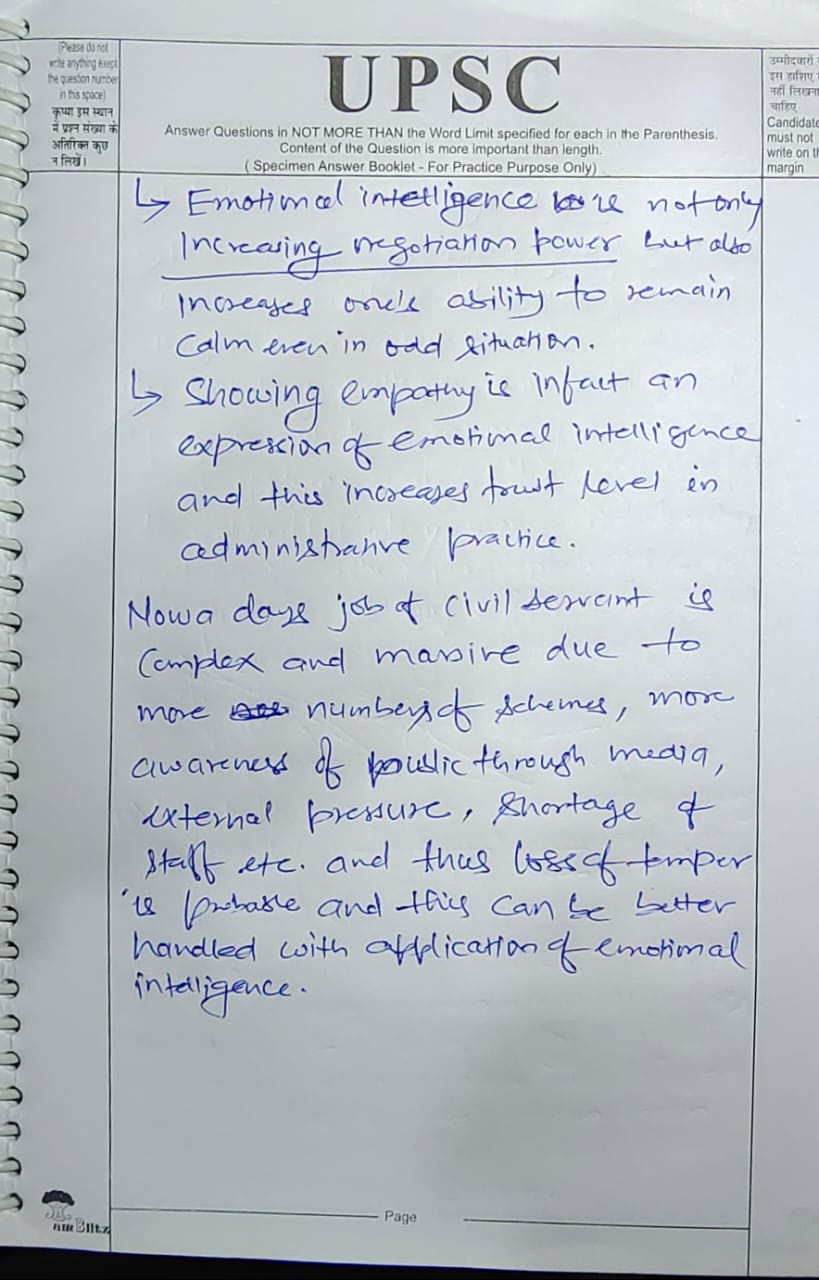 (Please do not
write anything exept
the question number
in this space)
कृप्या इस स्थान
में प्रश्न संख्या के
अतिरिक्त कुछ
न लिखें।
UPSC
Answer Questions in NOT MORE THAN the Word Limit specified for each in the Parenthesis.
Content of the Question is more important than length.
( Specimen Answer Booklet - For Practice Purpose Only)
उम्मीदवारों
इस हाशिए
नहीं लिखना
चाहिए
Candidate
must not
write on th
margin
↳ Emotional intelligence is not only
increasing negotiation power but also
increases one's ability to remain
calm even in odd situation.
↳ Showing empathy is infact an
expression of emotional intelligence
and this increases trust level in
administrative practice.
Nowa days job of civil servant is
complex and massive due to
more numbers of schemes, more
awareness of public through media,
external pressure, shortage of
staff etc. and thus loss of temper
is probable and this can be better
handled with application of emotional
intelligence.
Page